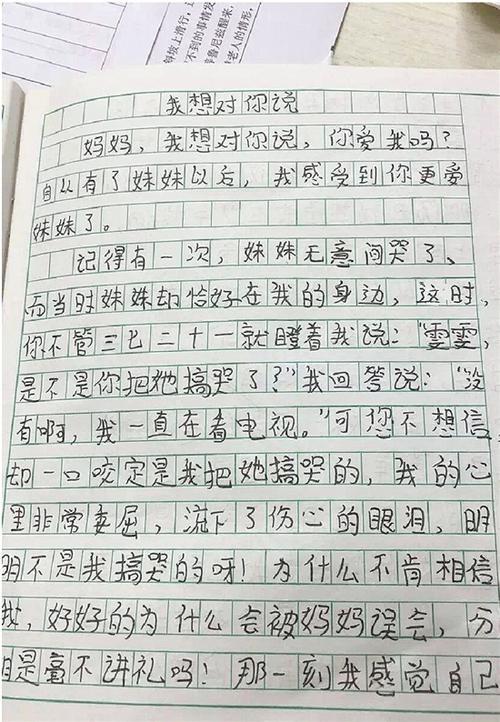 身坡上滑行，
不到的事情发
鲁尼兹醒来，
老人的情形，
我想对你说
妈妈，我想对你说，你爱我吗？
自从有了妹妹以后，我感受到你更爱
妹妹了。
记得有一次，妹妹无意间哭了、
而当时妹妹却恰好在我的身边，这时，
你不管三七二十一就瞪着我说：“雯雯，
是不是你把她搞哭了？”我回答说：“没
有啊，我一直在看电视。”可您不想信，
却一口咬定是我把她搞哭的，我的心
里非常委屈，流下了伤心的眼泪，明
明不是我搞哭的呀！为什么不肯相信
我，好好的为什么会被妈妈误会，分
明是毫不讲礼吗！那一刻我感觉自己